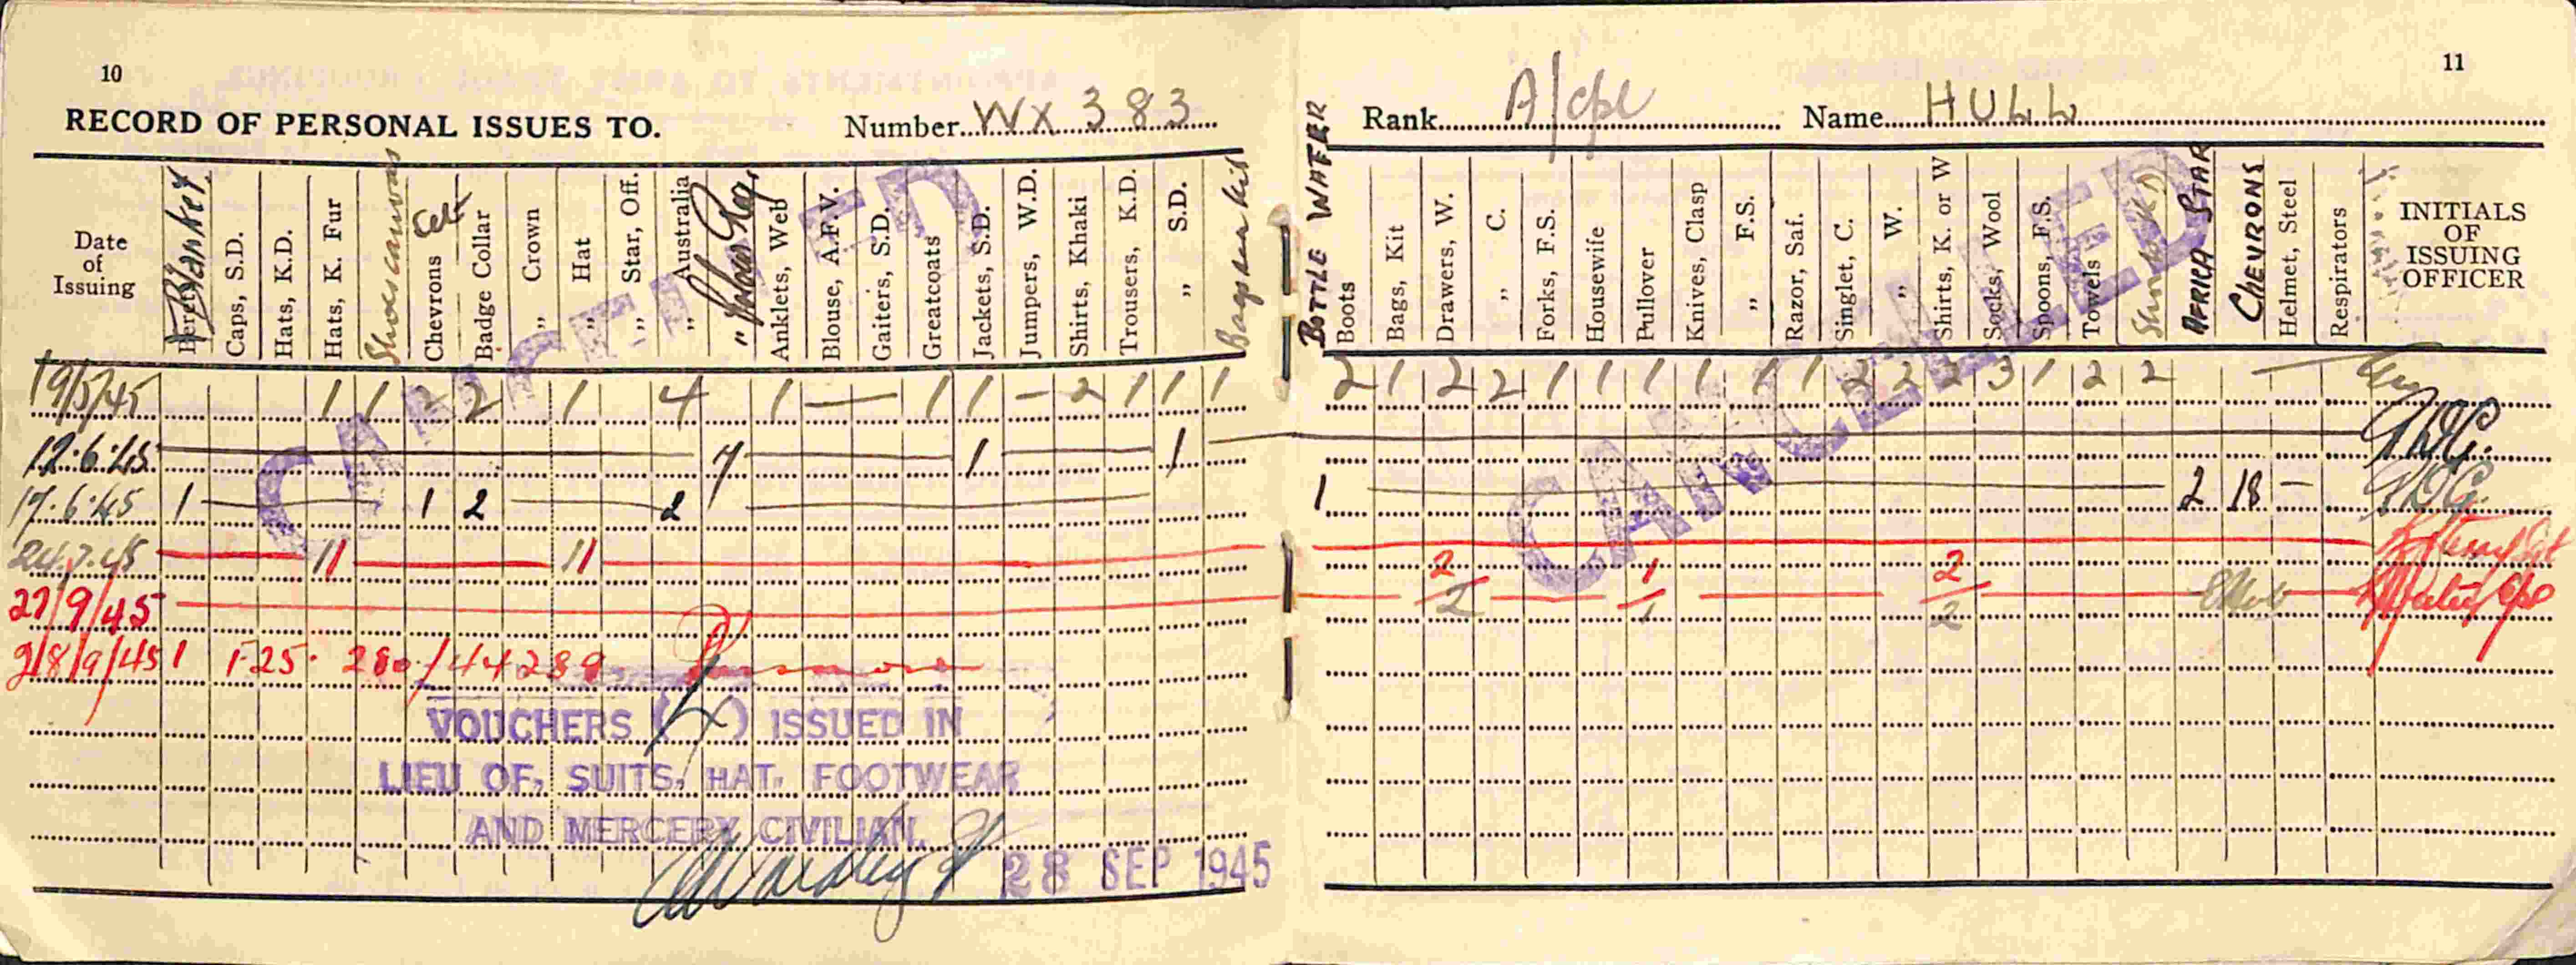 10
RECORD OF PERSONAL ISSUES TO. Number WX 383
Date of Issuing
Blanket
Caps, S.D.
Hats, K.D.
Hats, K. Fur
Shoes canvas
Chevrons
Badge Collar
„ Crown
„ Hat
„ Star, Off.
„ Australia
„ Colour
Anklets, Web
Blouse, A.F.V.
Gaiters, S.D.
Greatcoats
Jackets, S.D.
Jumpers, W.D.
Shirts, Khaki
Trousers, K.D.
„ S.D.
Bags sea kit
19/5/45 1 1 2 2 1 4 1 — 1 1 – 2 1 1 1
12.6.45 7 1 1
17.6.45 1 1 2 2
24.7.45 11 11
27/9/45
28/9/45 1 F25. 280/44289
CANCELLED
VOUCHERS (4) ISSUED IN
LIEU OF, SUITS, HAT, FOOTWEAR
AND MERCERY CIVILIAN.
28 SEP 1945
11
Rank A/Cpl Name HULL
BOTTLE WATER
Boots
Bags, Kit
Drawers, W.
„ C.
Forks, F.S.
Housewife
Pullover
Knives, Clasp
„ F.S.
Razor, Saf.
Singlet, C.
„ W.
Shirts, K. or W
Socks, Wool
Spoons, F.S.
Towels
AFRICA STAR
CHEVRONS
Helmet, Steel
Respirators
INITIALS OF ISSUING OFFICER
2 1 2 2 1 1 1 1 1 1 2 2 2 3 1 2 2 —
1 2 18 –
2 1 2
2 1 2
CANCELLED